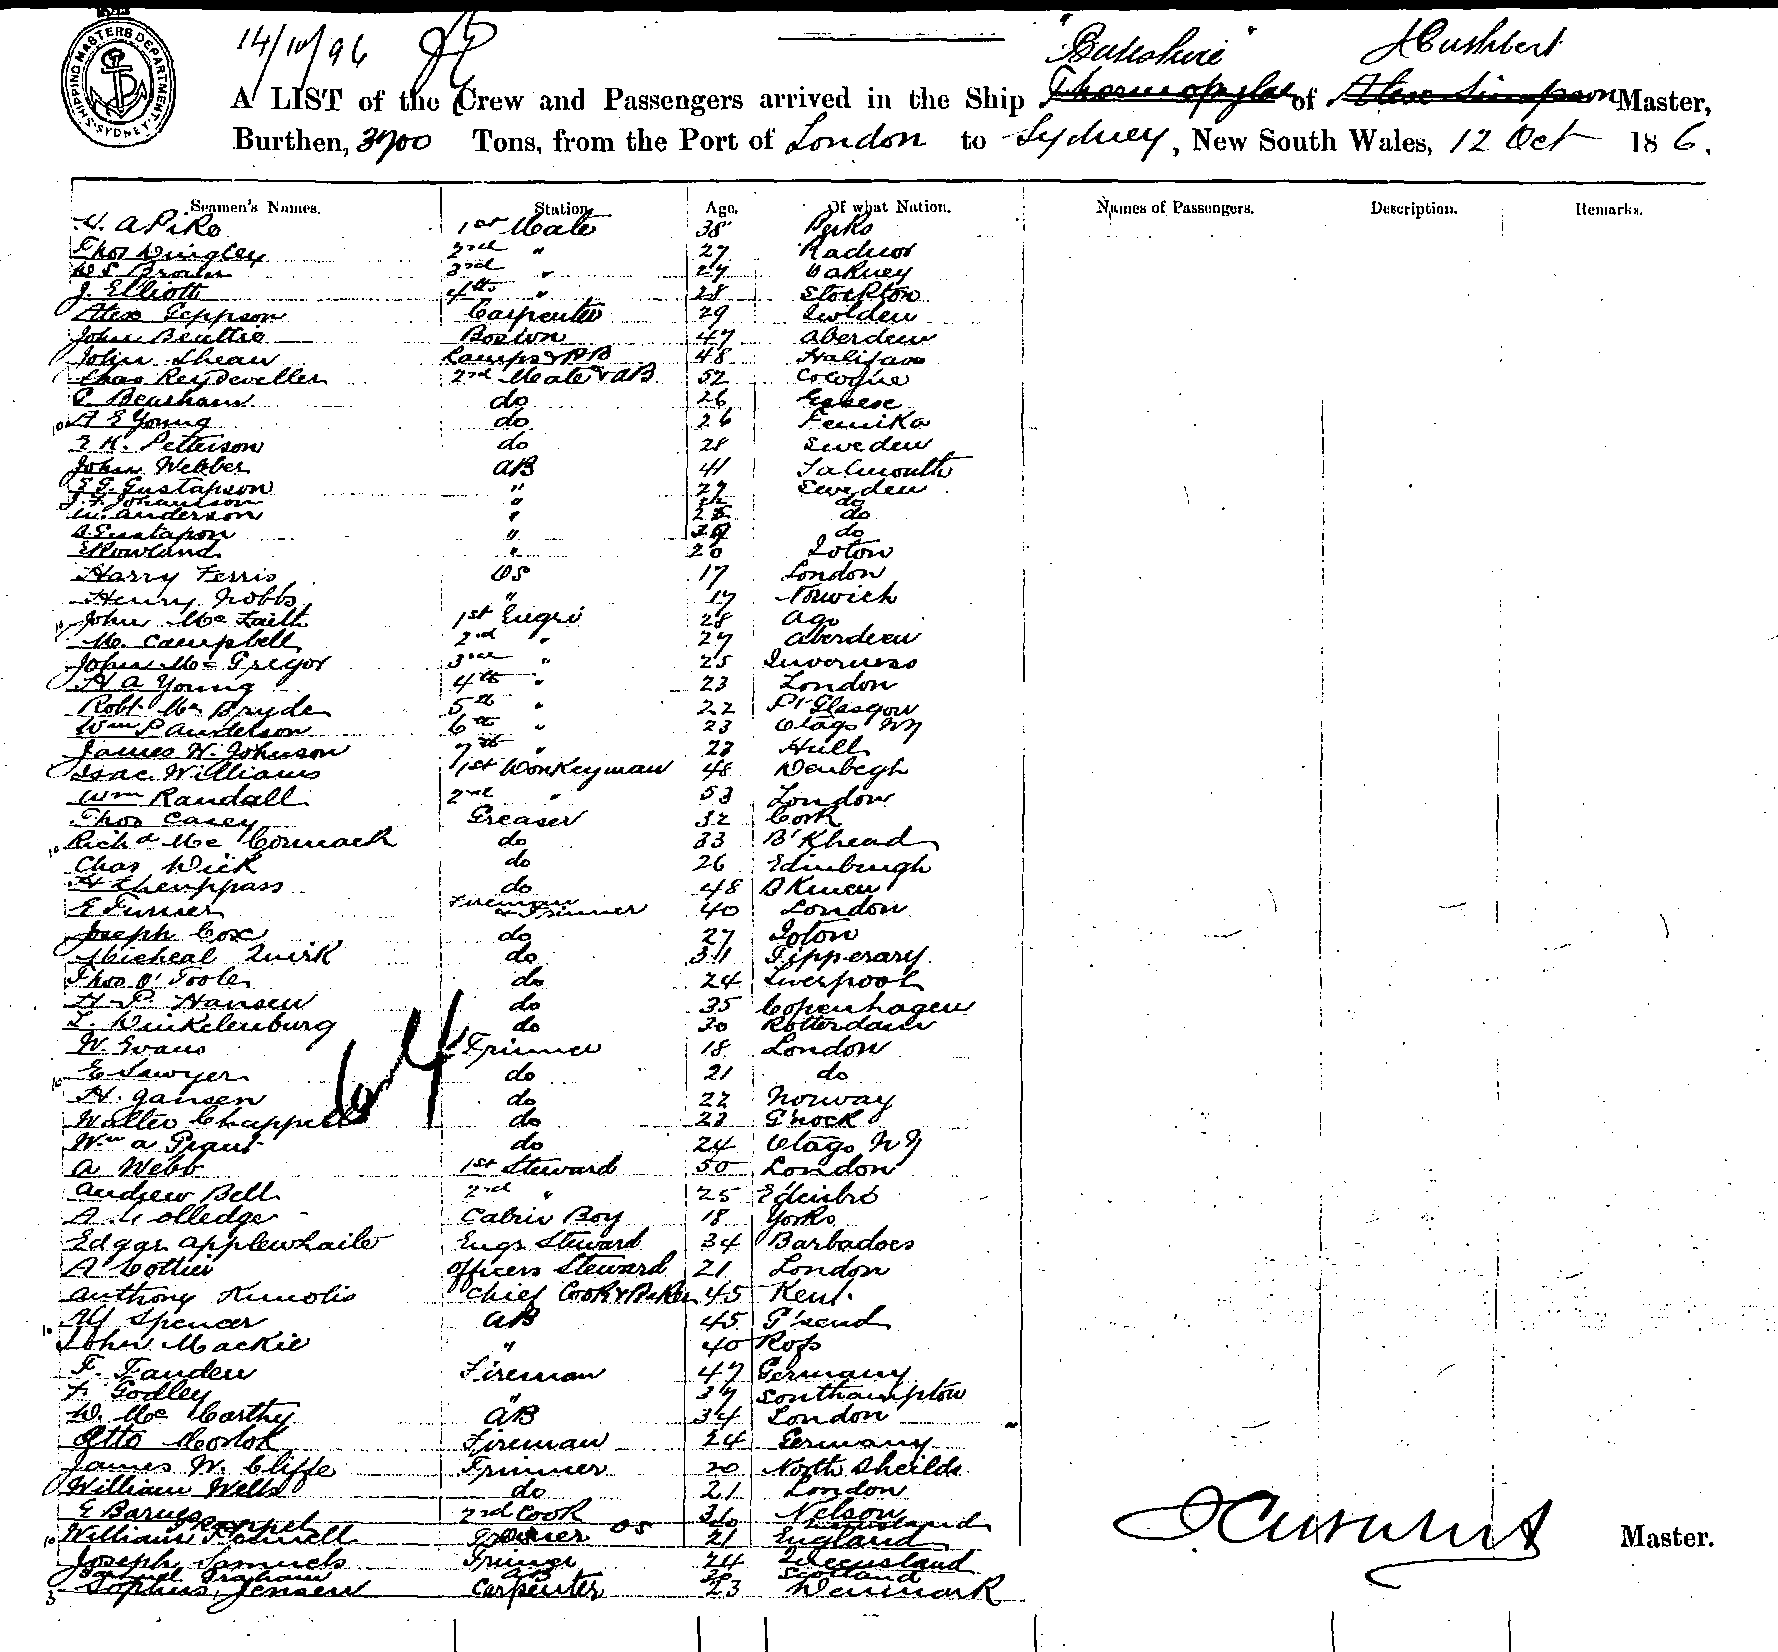 SHIPPING MASTERS DEPARTMENT. SYDNEY.
14/10/96
"Buteshire" J Cushbert
A LIST of the Crew and Passengers arrived in the Ship Thermopylae of Alexr Simpson Master,
Burthen, 3700 Tons, from the Port of London to Sydney, New South Wales, 12 Oct 18 6.
Seamen's Names. Station Age. Of what Nation. Names of Passengers. Description. Remarks.
H. A Pike 1st Mate 38
Thos Dingley 2nd " 27 Radnor
W S Brown 3rd " 27 Orkney
J. Elliott 4th " 28 Stockton
Alex Jeppson Carpenter 29 Sweden
John Beattie Bosion 47 Aberdeen
John Shean Lamps & AB 48 Halifax
Chas 2nd Mate & AB 52 Cologne
C. Bearham do 26 Essex
A E Young do 26
K. Petterson do 28 Sweden
John Webber AB 41 Falmouth
Gustapson " 27 Sweden
J. F. Johansson " do
W. Anderson " 25 do
Gustapon " do
E Rowland " 20 Ioton
Harry Ferris OS 17 London
Henry Nobbs " 17 Norwich
John Mc Faith 1st Engr 28
M. Campbell 2nd " 27 Aberdeen
John Mc Gregor 3rd " 25 Inverness
H A Young 4th " 23 London
Robt Mc Bryde 5th " 22 Pt Glasgow
Wm P Anderson 6th " 23 Otago NZ
James H. Johnson 7th " 23 Hull
Isac Williams 1st Donkeyman 48 Denbegh
Wm Randall 2nd " 53 London
Thos Casey Greaser 32 Cork
Richd Mc Cormack do 33 B'Khead
Chas Wick do 26 Edinburgh
H do 48
E Turner Fireman & Trimmer 40 London
Joseph Cox do 27 Ioton
Micheal Quirk do 31 Tipperary
Thos O'Toole do 24 Liverpool
H P Hansen do 35 Copenhagen
L. Winkelenburg do 30 Rotterdam
W. Evans Trimmer 18 London
E Sawyer do 21 do
H. Jansen do 22 Norway
Walter Chappell do 23 G'nock
Wm A Grant do 24 Otago N Z
A Webb 1st Steward 50 London
Andrew Bell 2nd " 25 Edinbro
A. Colledge Cabin Boy 18 Yorks
Edgar Applewhaite Engs Steward 34 Barbadoes
A Cottier Officers Steward 21 London
Anthony Kimolis Chief Cook & Baker 45 Kent.
Alf Spencer AB 45 G'send
John Mackie " 40 Ross
F. Fanden Fireman 47 Germany
F. Godley " 37 Southampton
D. Mc Carthy AB 34 London
Otto Fireman 24 Germany
James W. Cliffe Trimmer 20 North Sheilds
William Wells do 21 London
E Barnes 2nd Cook 36 Nelson
William OS 21 England
Joseph Samuels Trimmer 24 Queensland
Graham AB 30 Scotland
Sophus Jensen Carpenter 23 Denmark
J Cushbert Master.